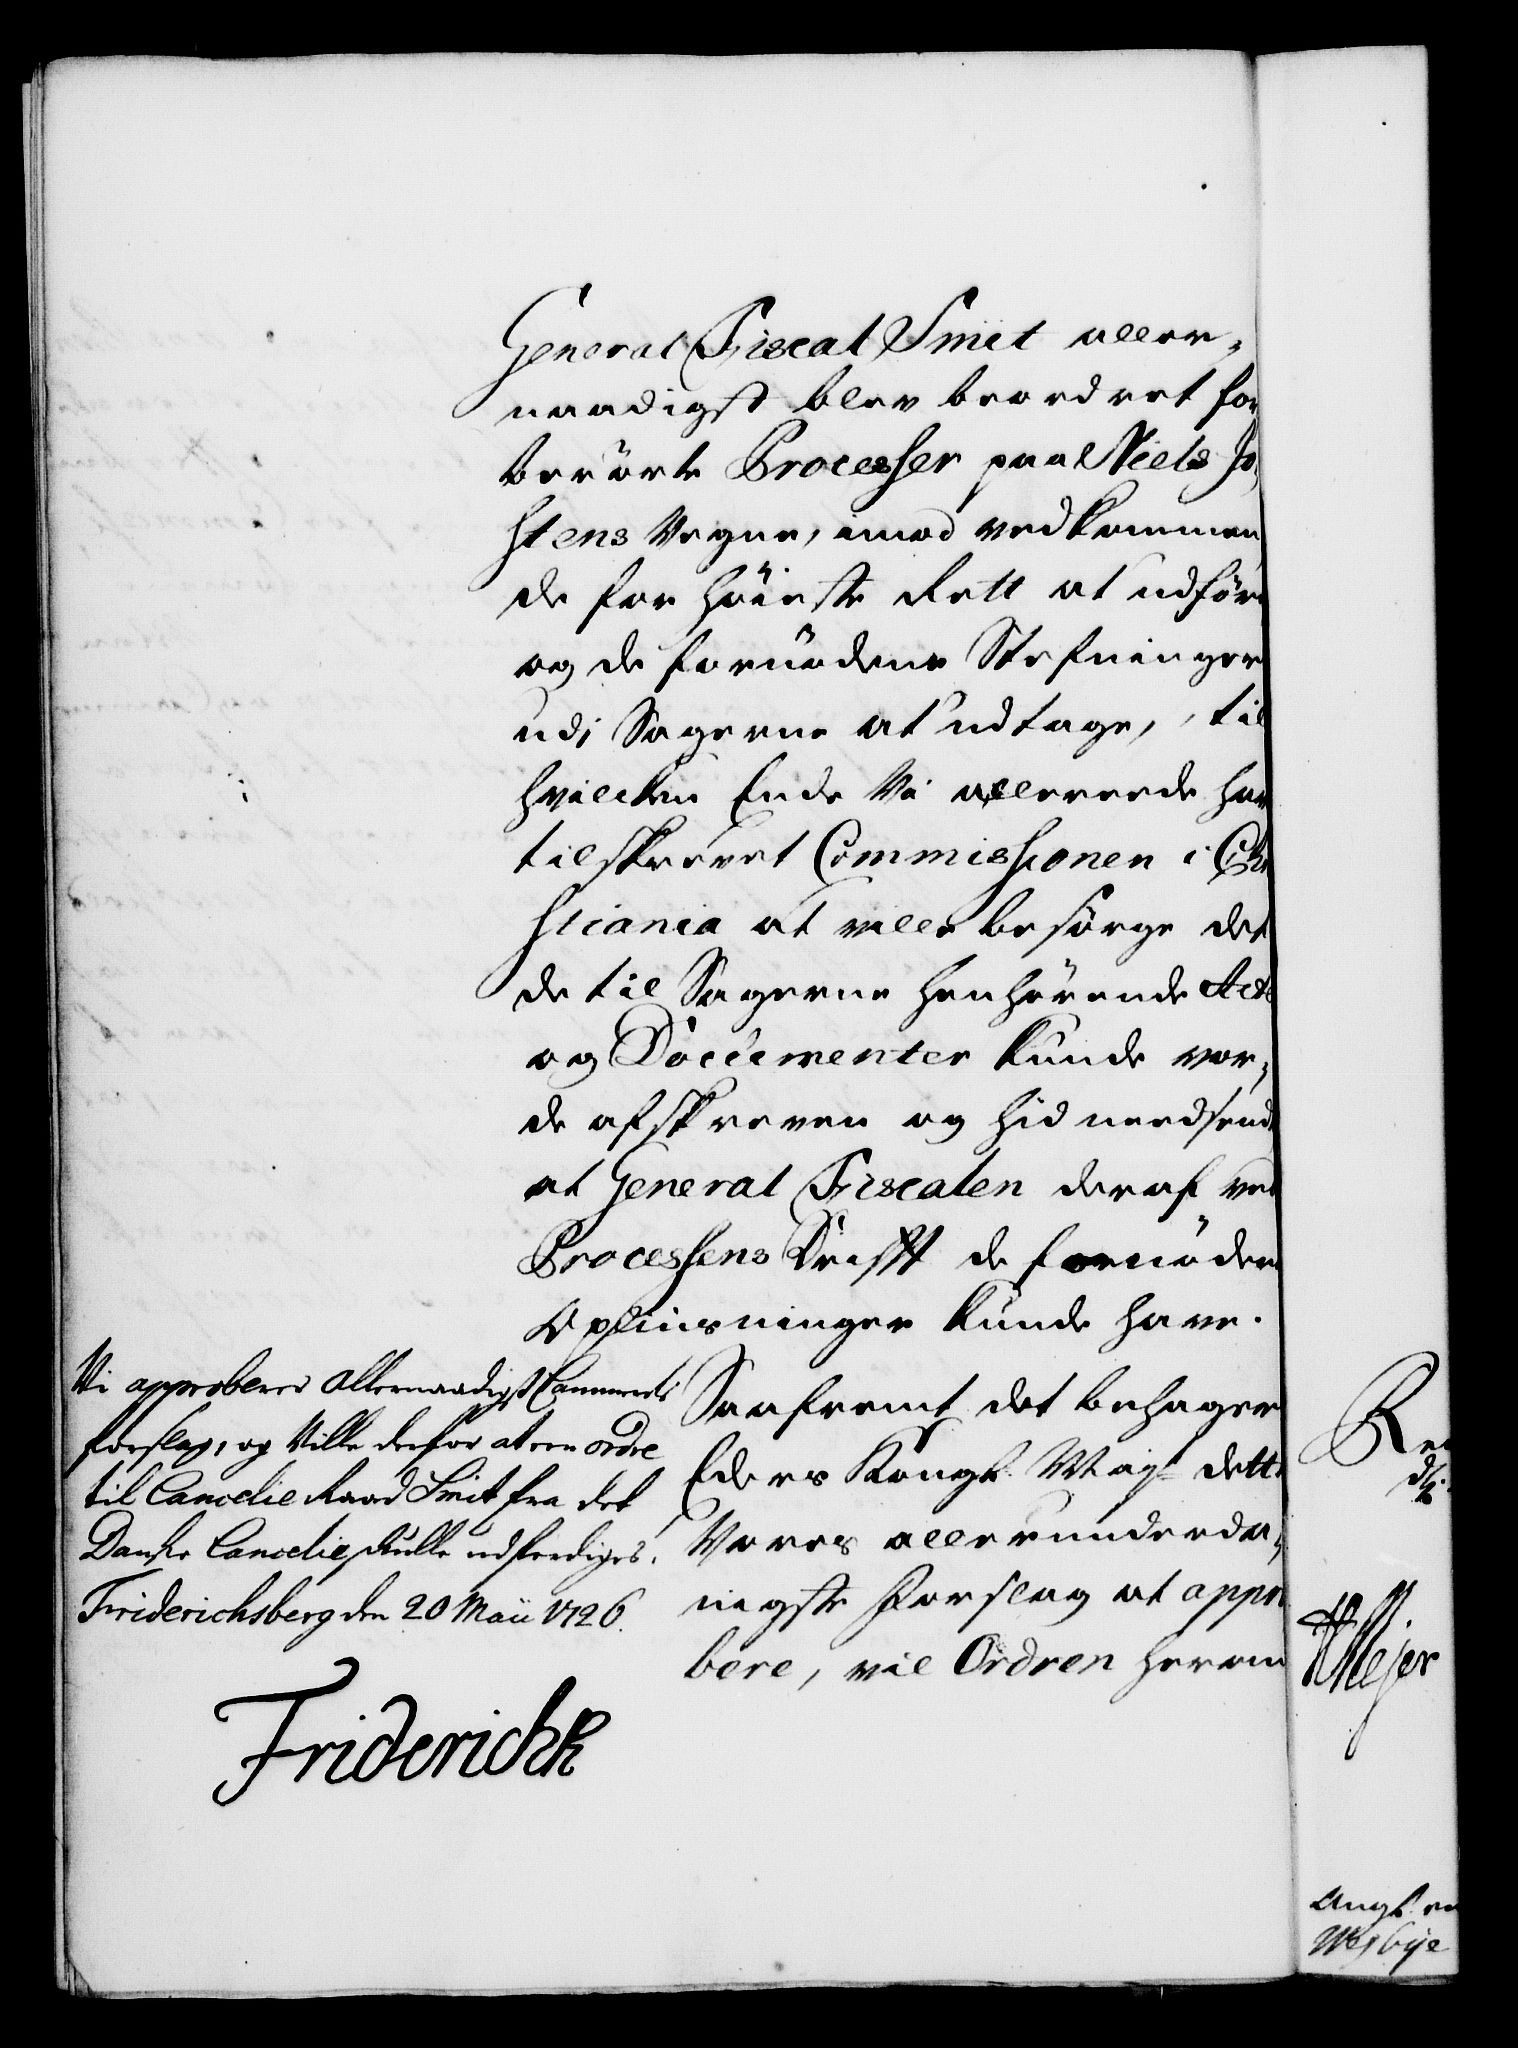 General Fiscal Smit aller-
naadigst blev beordret for
berörte Processer paa Niels Jo
stens Vegne, imod vedkommen
de for höieste Rett at udföre
og de fornödene Stefninger
udi Sagerne at udtage, til
hvilcken Ende Vi allereede har
tilskrevet Commissionen i Chri
stiania at ville besörge det
de til Sagerne henhörende Acter
og Documenter kunde vor-
de afskreven og hid neerdsendt
at General Fiscalen deraf ved
Processens Drifft de fornöden
Oplysninger kunde have.
Saafremt det behager
Eders Kongl. Mayt. dette
Vores allerunderda-
nigste Forslag at appro
bere, vil Ordren herom
Vi approberer allernaadigst Cammerets
forslag, og Ville derfor at en ordre
til Cancelie Raad Smit fra det
Danske Cancelie skulle udferdiges.
Friderichsberg den 20 Maii 1726.
Friderich R
Meyer